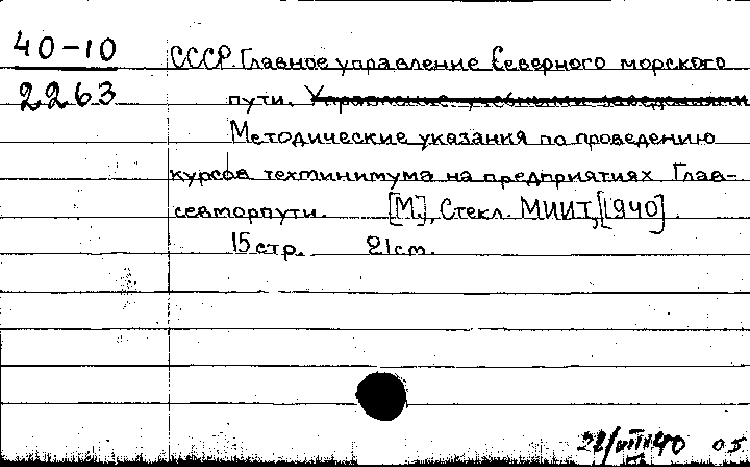 40-10
2263
СССР. Главное управление Северного морского
пути. Управление учебными заведениями
Методические указания по проведению
курсов техминимума на предприятиях Глав-
севморпути. [М.], Стекл. МИИТ, [1940].
15 стр. 21 см.
22/VIII 40 05